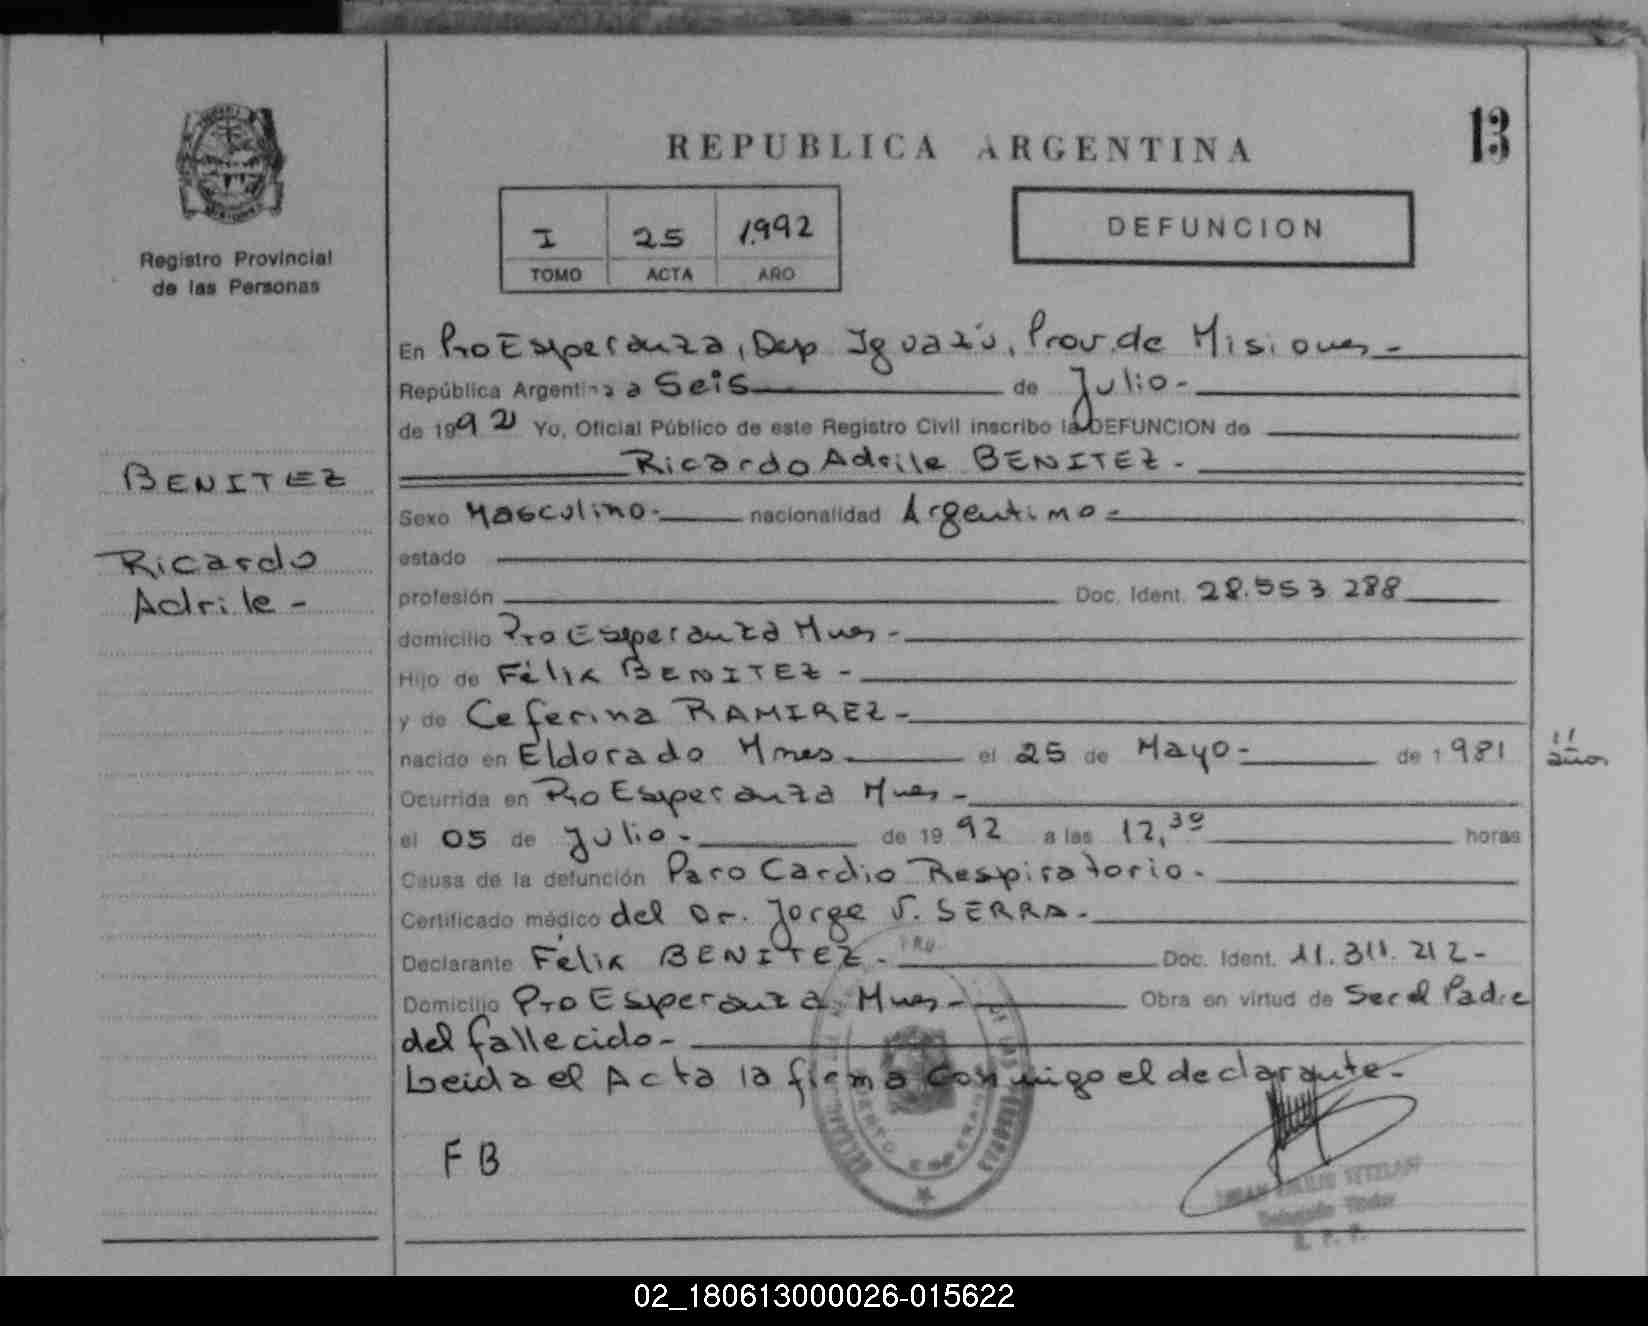 13
REPUBLICA ARGENTINA
Registro Provincial
de las Personas
I 25 1.992
TOMO ACTA AÑO
DEFUNCION
En Pto Esperanza, Dep Iguazú, Prov. de Misiones-
República Argentina a Seis de Julio-
de 1992 Yo, Oficial Público de este Registro Civil inscribo la DEFUNCION de
Ricardo Adrile BENITEZ-
BENITEZ
Ricardo
Adrile-
Sexo Masculino- nacionalidad Argentino-
estado
profesión Doc. Ident. 28.553.288
domicilio Pto Esperanza Mnes-
Hijo de Félix BENITEZ-
y de Ceferina RAMIREZ-
nacido en Eldorado Mnes. el 25 de Mayo- de 1981
11
años
Ocurrida en Pto Esperanza Mnes-
el 05 de Julio- de 1992 a las 12,30 horas
Causa de la defunción Paro Cardio Respiratorio-
Certificado médico del Dr. Jorge J. SERRA-
Declarante Félix BENITEZ- Doc. Ident. 11.311.212-
Domicilio Pto Esperanza Mnes- Obra en virtud de Ser el Padre
del fallecido-
Leida el Acta la firma conmigo el declarante-
F B
Delegado Titular
R. P. P.
02_180613000026-015622